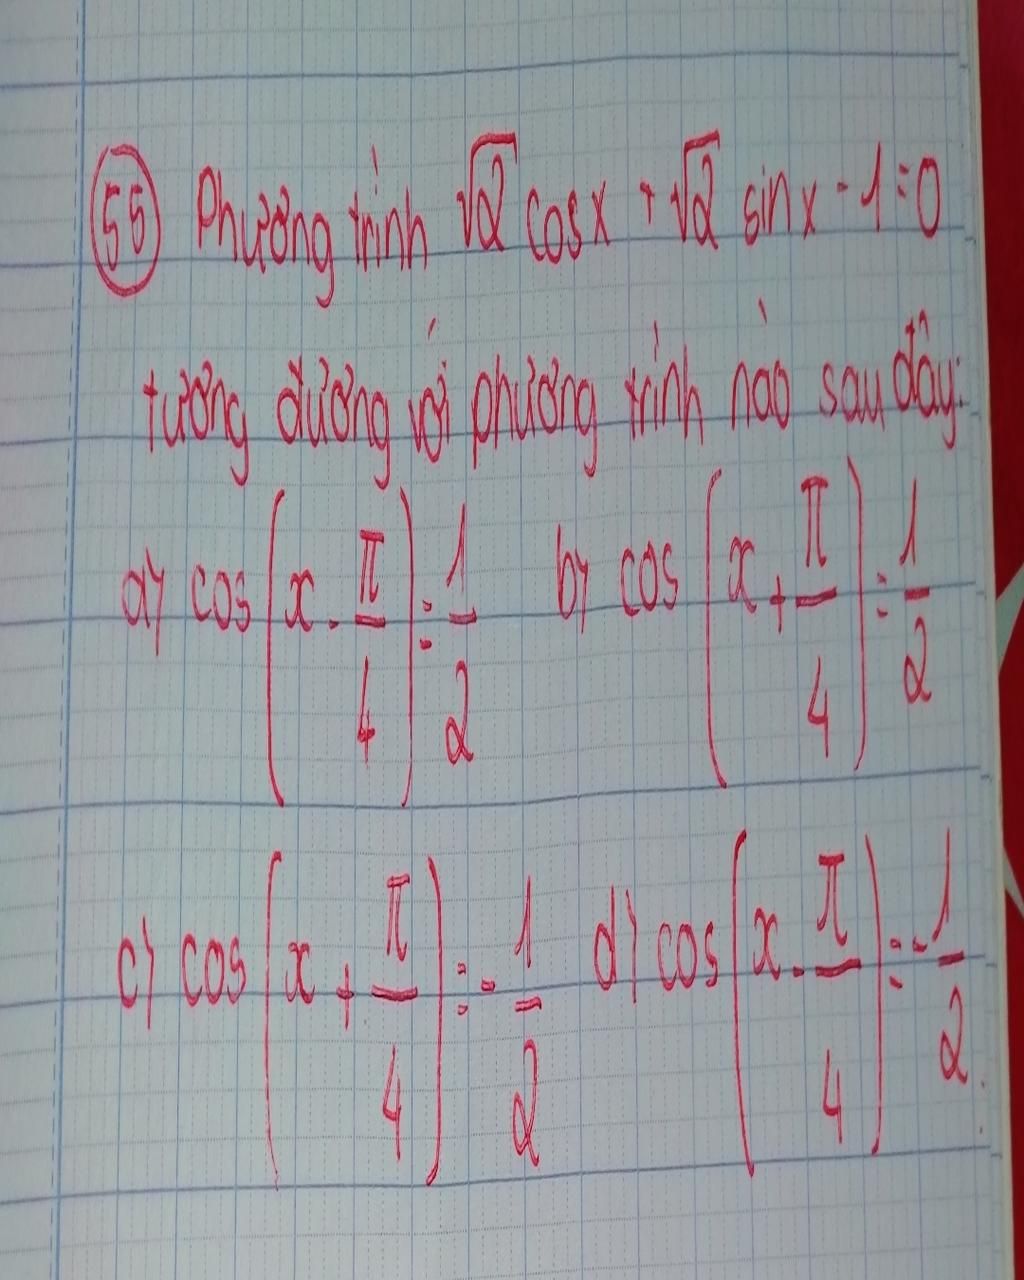 55 Phương trình √2 cosx + √2 sinx - 1 = 0
tương đương với phương trình nào sau đây:
a) cos(x - π/4) = 1/2 b) cos(x + π/4) = 1/2
c) cos(x + π/4) = -1/2 d) cos(x - π/4) = -1/2.